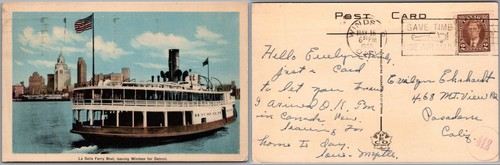 La Salle Ferry Boat, leaving Windsor for Detroit.
POST CARD
WINDSOR
SAVE TIME
Hello Evelyn
Just a Card
to let you know
I arrived O.K. I'm
in Canada Now.
leaving for
home to day.
love. Myrtle.
Evelyn Ekhardt
468 Mt. View Rd
Pasadena
Calif.